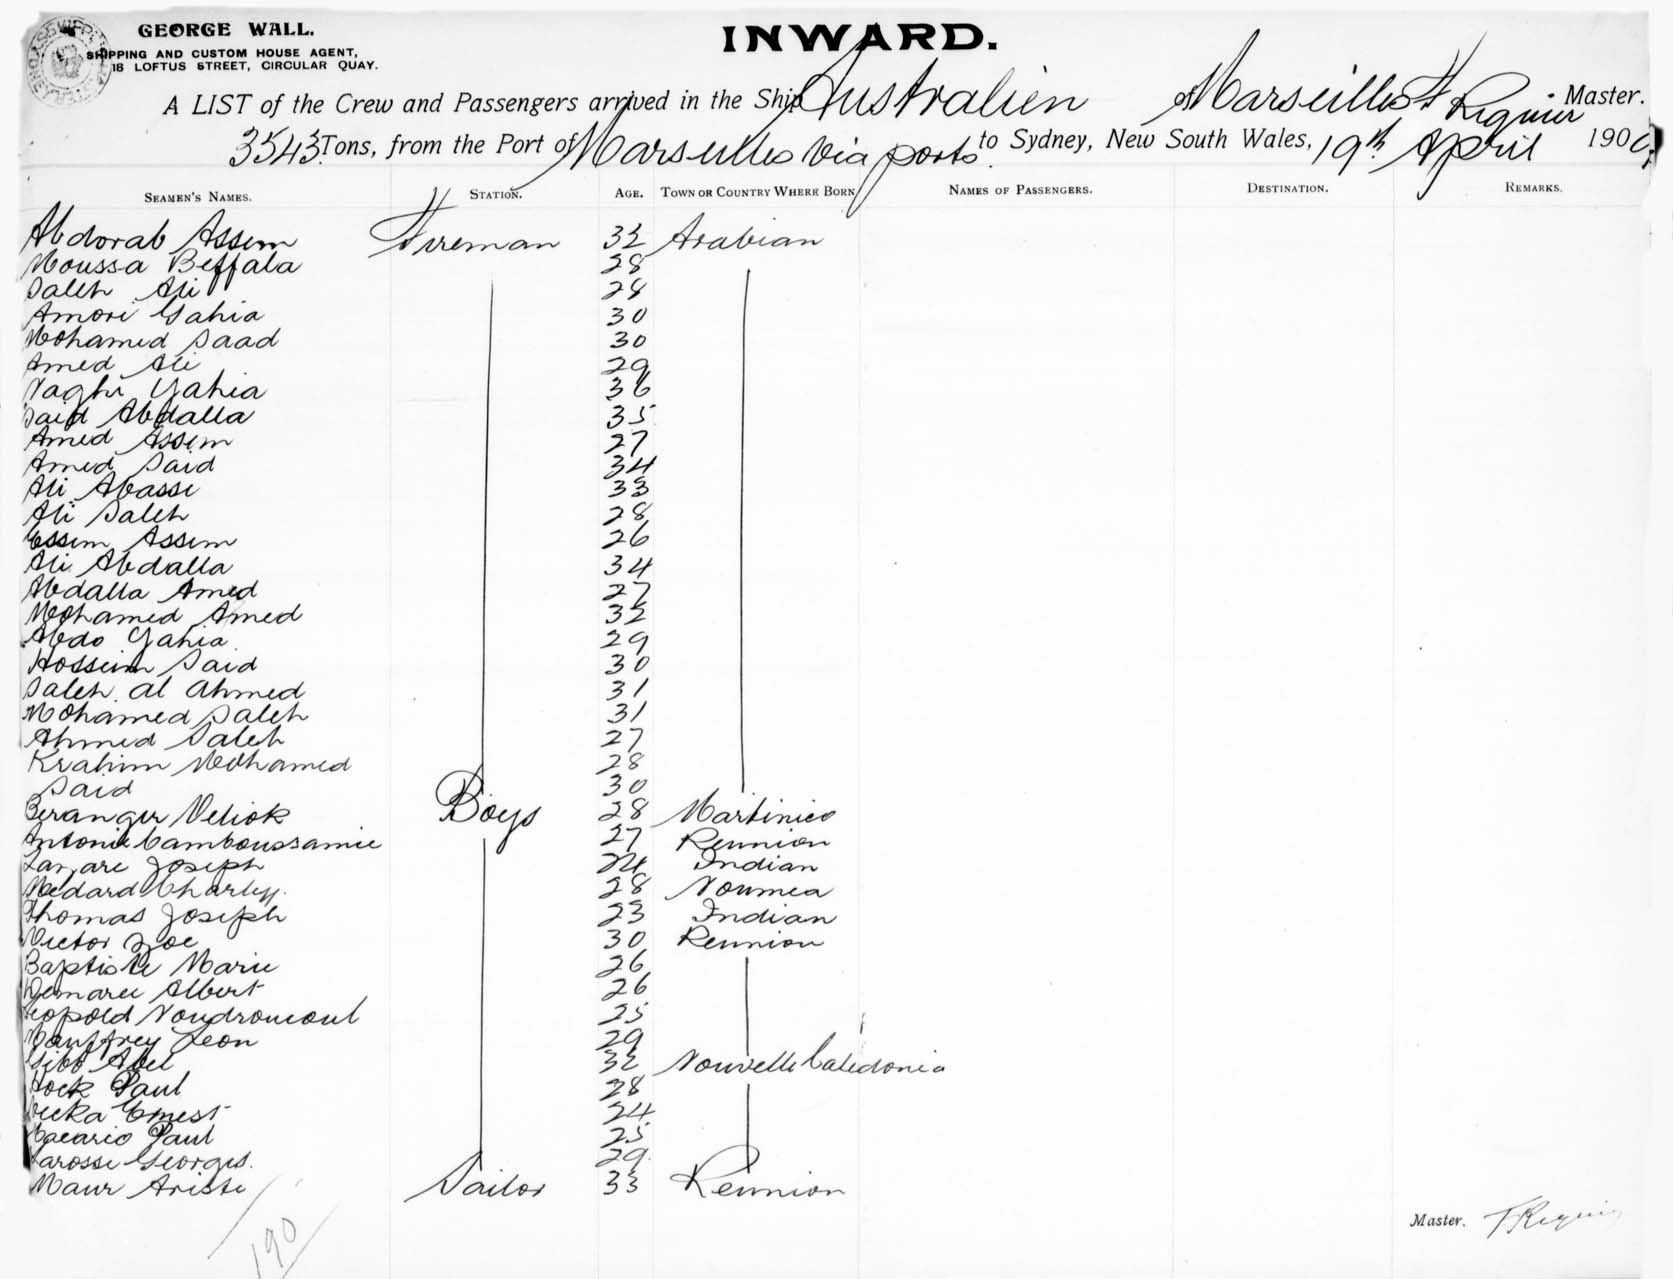 GEORGE WALL.
SHIPPING AND CUSTOM HOUSE AGENT,
18 LOFTUS STREET, CIRCULAR QUAY.
INWARD.
A LIST of the Crew and Passengers arrived in the Ship Australien of Marseilles F Requier Master.
3543 Tons, from the Port of Marseilles Via ports to Sydney, New South Wales, 19th April 190
SEAMEN'S NAMES. STATION. AGE. TOWN OR COUNTRY WHERE BORN NAMES OF PASSENGERS. DESTINATION. REMARKS.
Abdorab Assem Fireman 32 Arabian
Moussa Beffala 28
Saleh Ali 28
Amori Gahia 30
Mohamed Saad 30
Amed Ali 29
Naghi Yahia 36
Said Abdalla 35
Amed Assem 27
Amed Said 34
Ali Abassi 33
Ali Saleh 28
Essem Assem 26
Ali Abdalla 34
Abdalla Amed 27
Mohamed Amed 32
Abdo Yahia 29
Hosseim Said 30
Saleh al Ahmed 31
Mohamed Saleh 31
Ahmed Saleh 27
Krahim Mohamed 28
Said 30
Beranger Veliok Boys 28 Martinico
Antonie Camboussamie 27 Reunion
Lazare Joseph 24 Indian
Medard Charley. 28 Noumea
Thomas Joseph 23 Indian
Victor Zoe 30 Reunion
Baptiste Marie 26
Demaree Albert 26
Leopold 25
Mauffrey Leon 29
Gibb Abel 32 Nouvelle Caledonia
Hock Paul 28
Ernest 24
Macario Paul 25
Larosse Georges. 29
Maur Ariste Sailor 33 Reunion
190
Master. F Requier